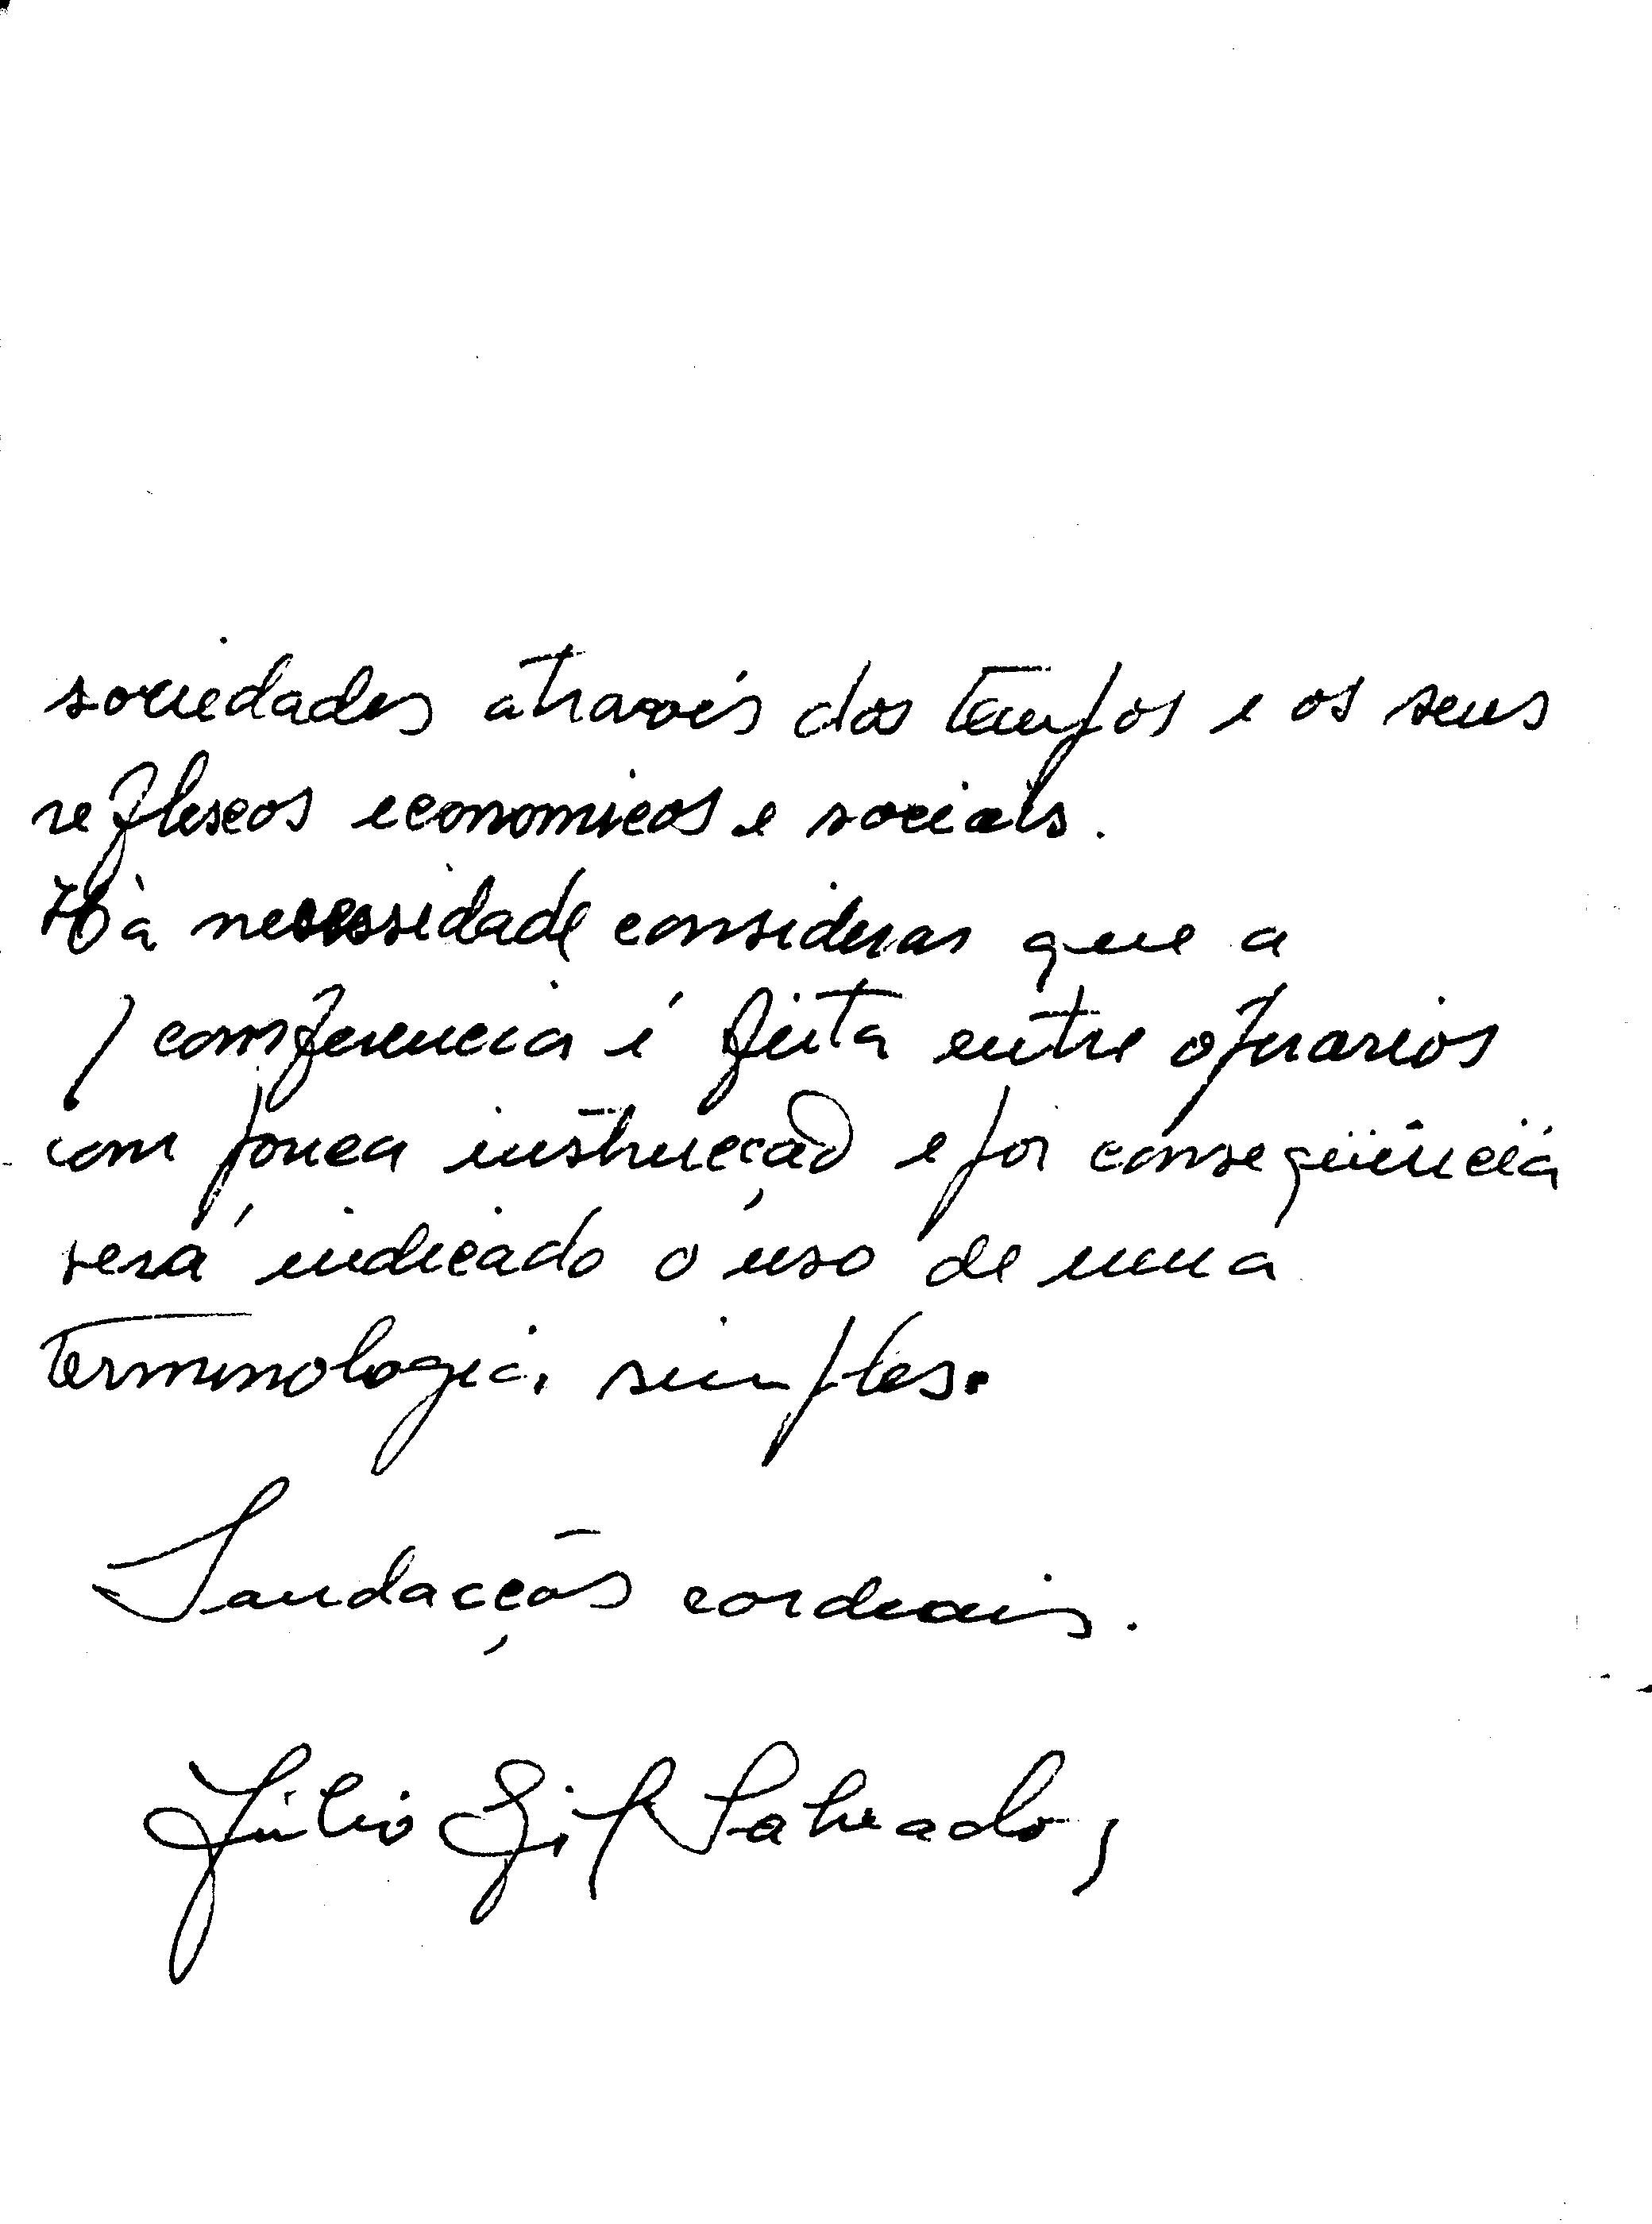 sociedades através dos tempos e os seus
reflexos economicos e sociais.
Hà necessidade considerar que a
conferencia é feita entre operarios
com pouca instrucção e por conseqüência
será indicado o uso de uma
terminologia simples.
Saudaçções cordeais.
Júlio Gil